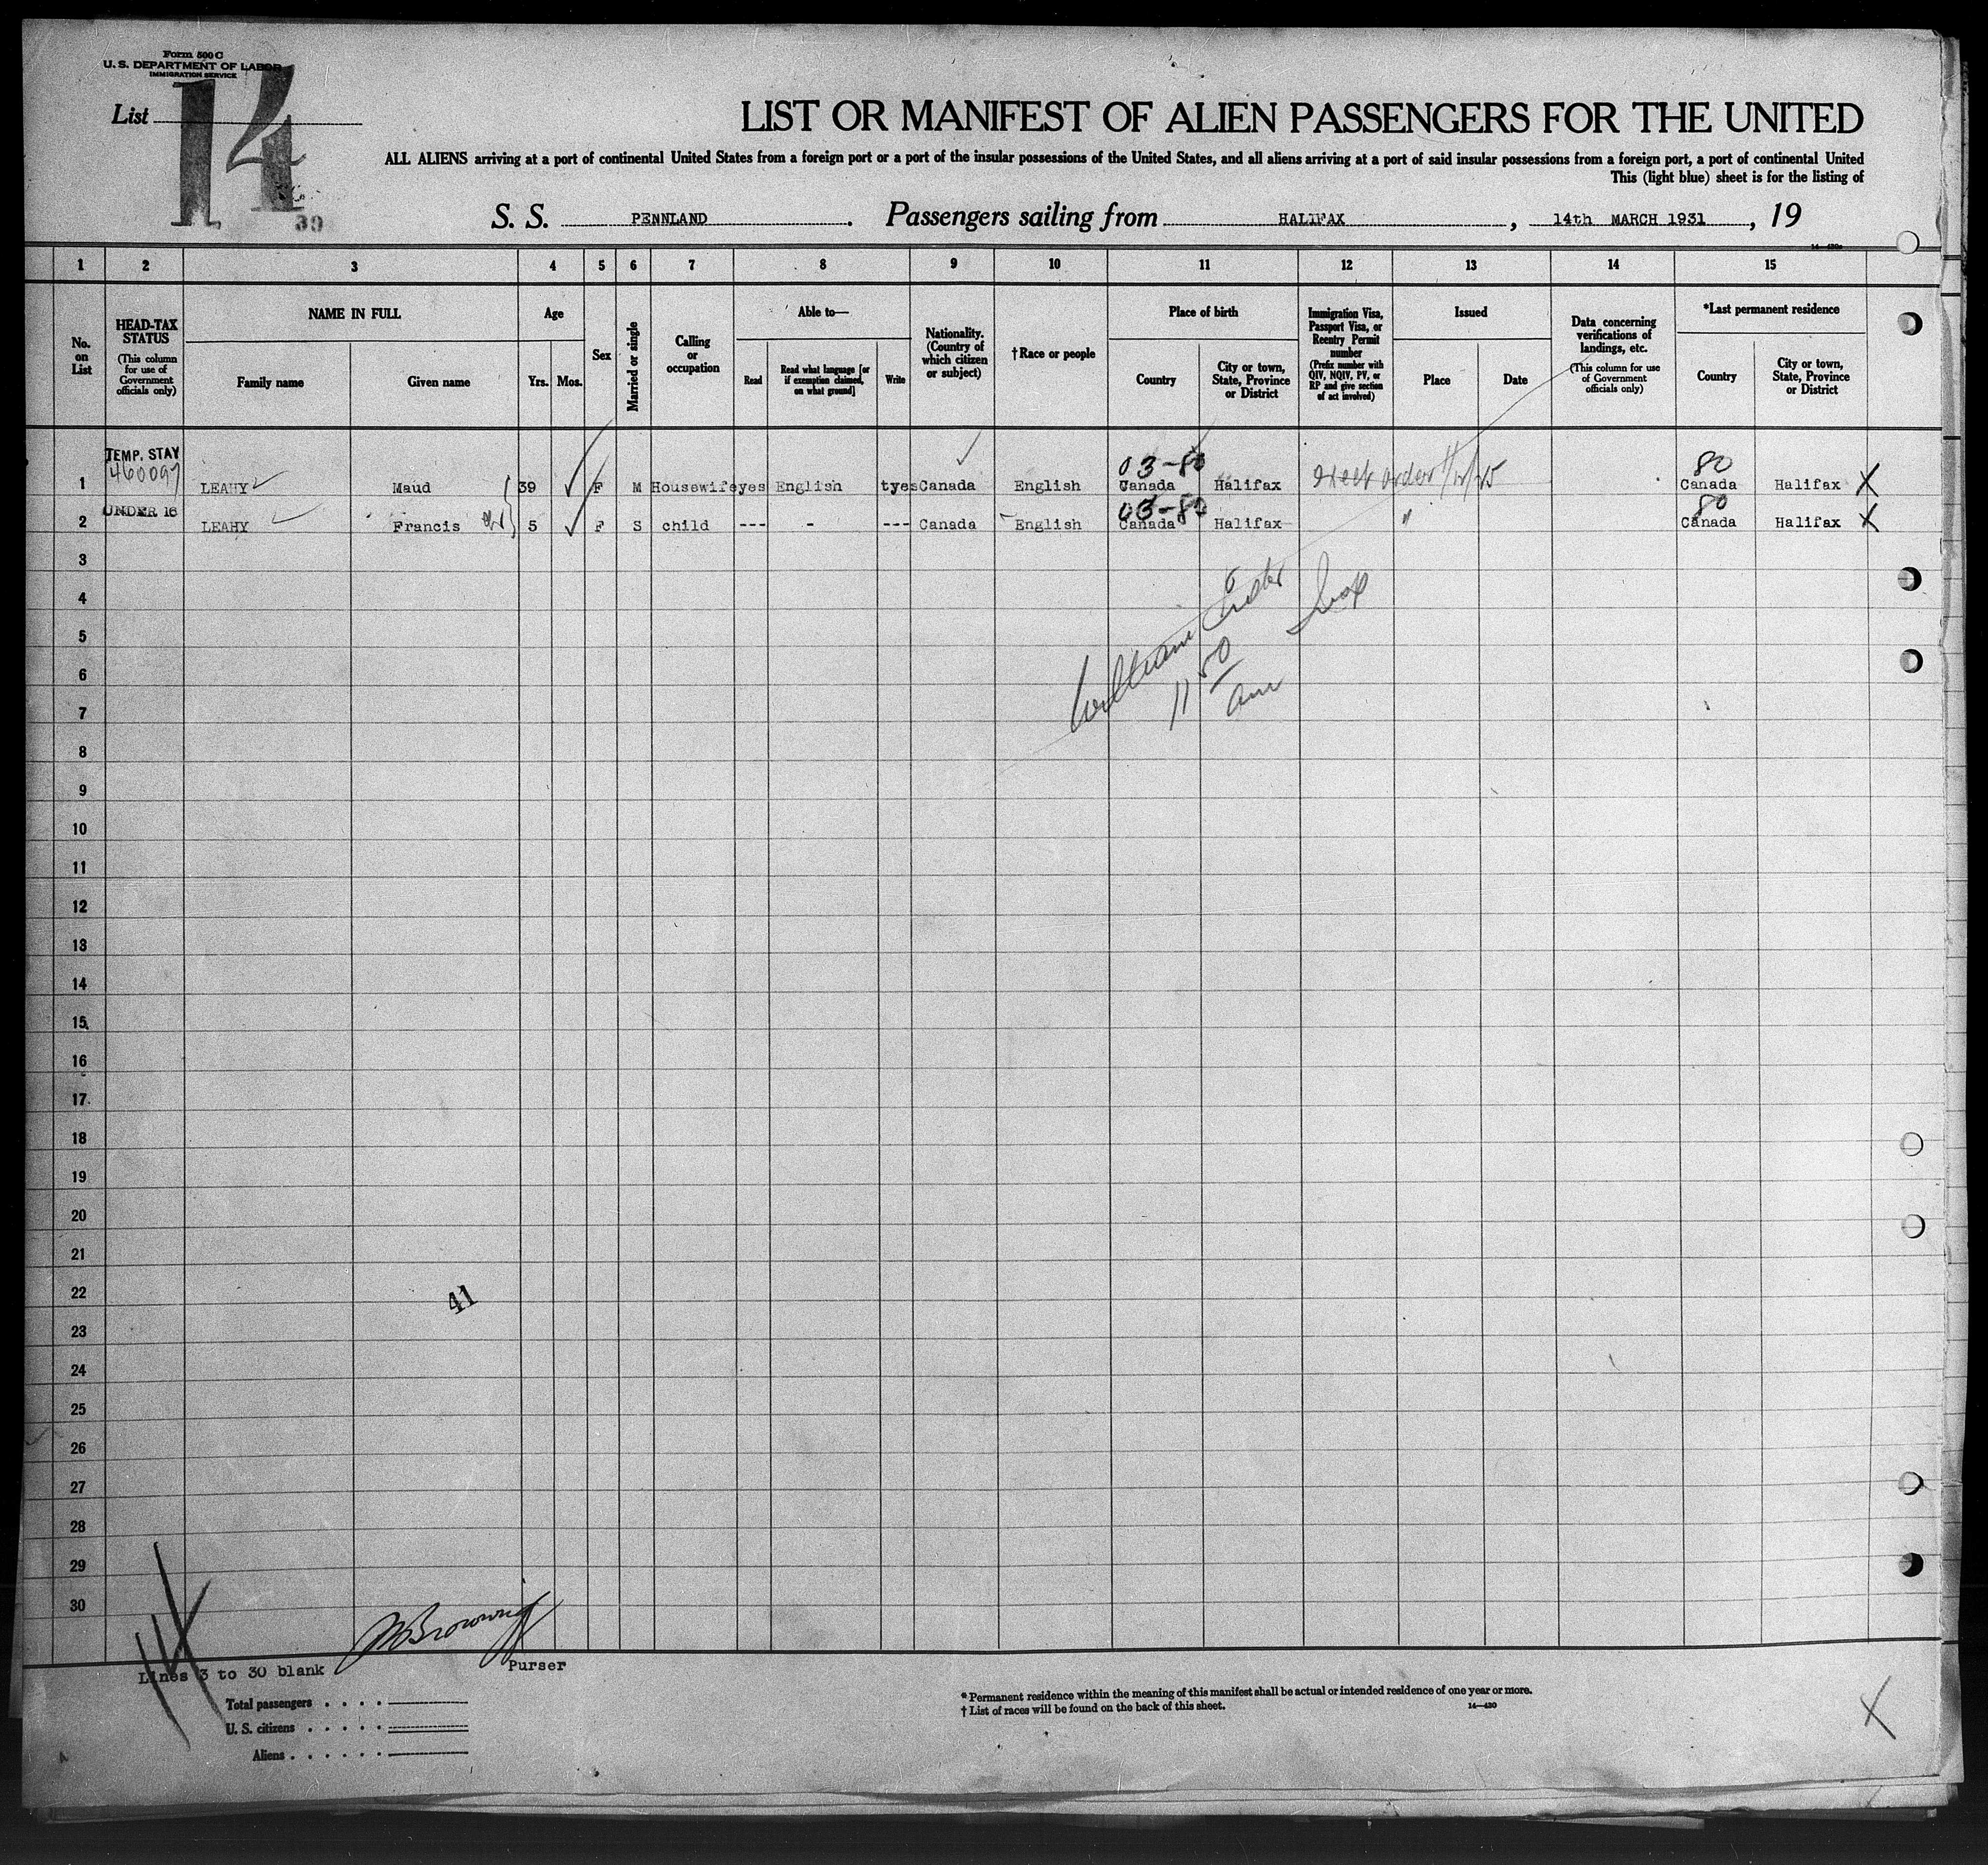 Form 500 C
U. S. DEPARTMENT OF LABOR
IMMIGRATION SERVICE
List 14
39
LIST OR MANIFEST OF ALIEN PASSENGERS FOR THE UNITED
ALL ALIENS arriving at a port of continental United States from a foreign port or a port of the insular possessions of the United States, and all aliens arriving at a port of said insular possessions from a foreign port, a port of continental United
This (light blue) sheet is for the listing of
S. S. PENNLAND . Passengers sailing from HALIFAX , 14th MARCH 1931 , 19
1 2 3 4 5 6 7 8 9 10 11 12 13 14 15
No. on List
HEAD-TAX STATUS (This column for use of Government officials only)
NAME IN FULL
Family name
Given name
Age
Yrs. Mos.
Sex
Married or single
Calling or occupation
Able to—
Read
Read what language [or if exemption claimed, on what ground]
Write
Nationality. (Country of which citizen or subject)
†Race or people
Place of birth
Country
City or town, State, Province or District
Immigration Visa, Passport Visa, or Reentry Permit number (Prefix number with QIV, NQIV, PV, or RP and give section of act involved)
Issued
Place
Date
Data concerning verifications of landings, etc. (This column for use of Government officials only)
*Last permanent residence
Country
City or town, State, Province or District
TEMP. STAY
03-80 80
1 LEAHY Maud 39 F M Housewife yes English tyes Canada English Canada Halifax Canada Halifax X
UNDER 16
03-80 80
2 LEAHY Francis 5 F S child --- - --- Canada English Canada Halifax " Canada Halifax X
3
4
5
6
7
8
9
10
11
12
13
14
15
16
17
18
19
20
21
22
23
24
25
26
27
28
29
30
William
11 50 am
41
Lines 3 to 30 blank
Purser
Total passengers . . . .
U. S. citizens . . . . .
Aliens . . . . . .
* Permanent residence within the meaning of this manifest shall be actual or intended residence of one year or more.
† List of races will be found on the back of this sheet.
14—420
X